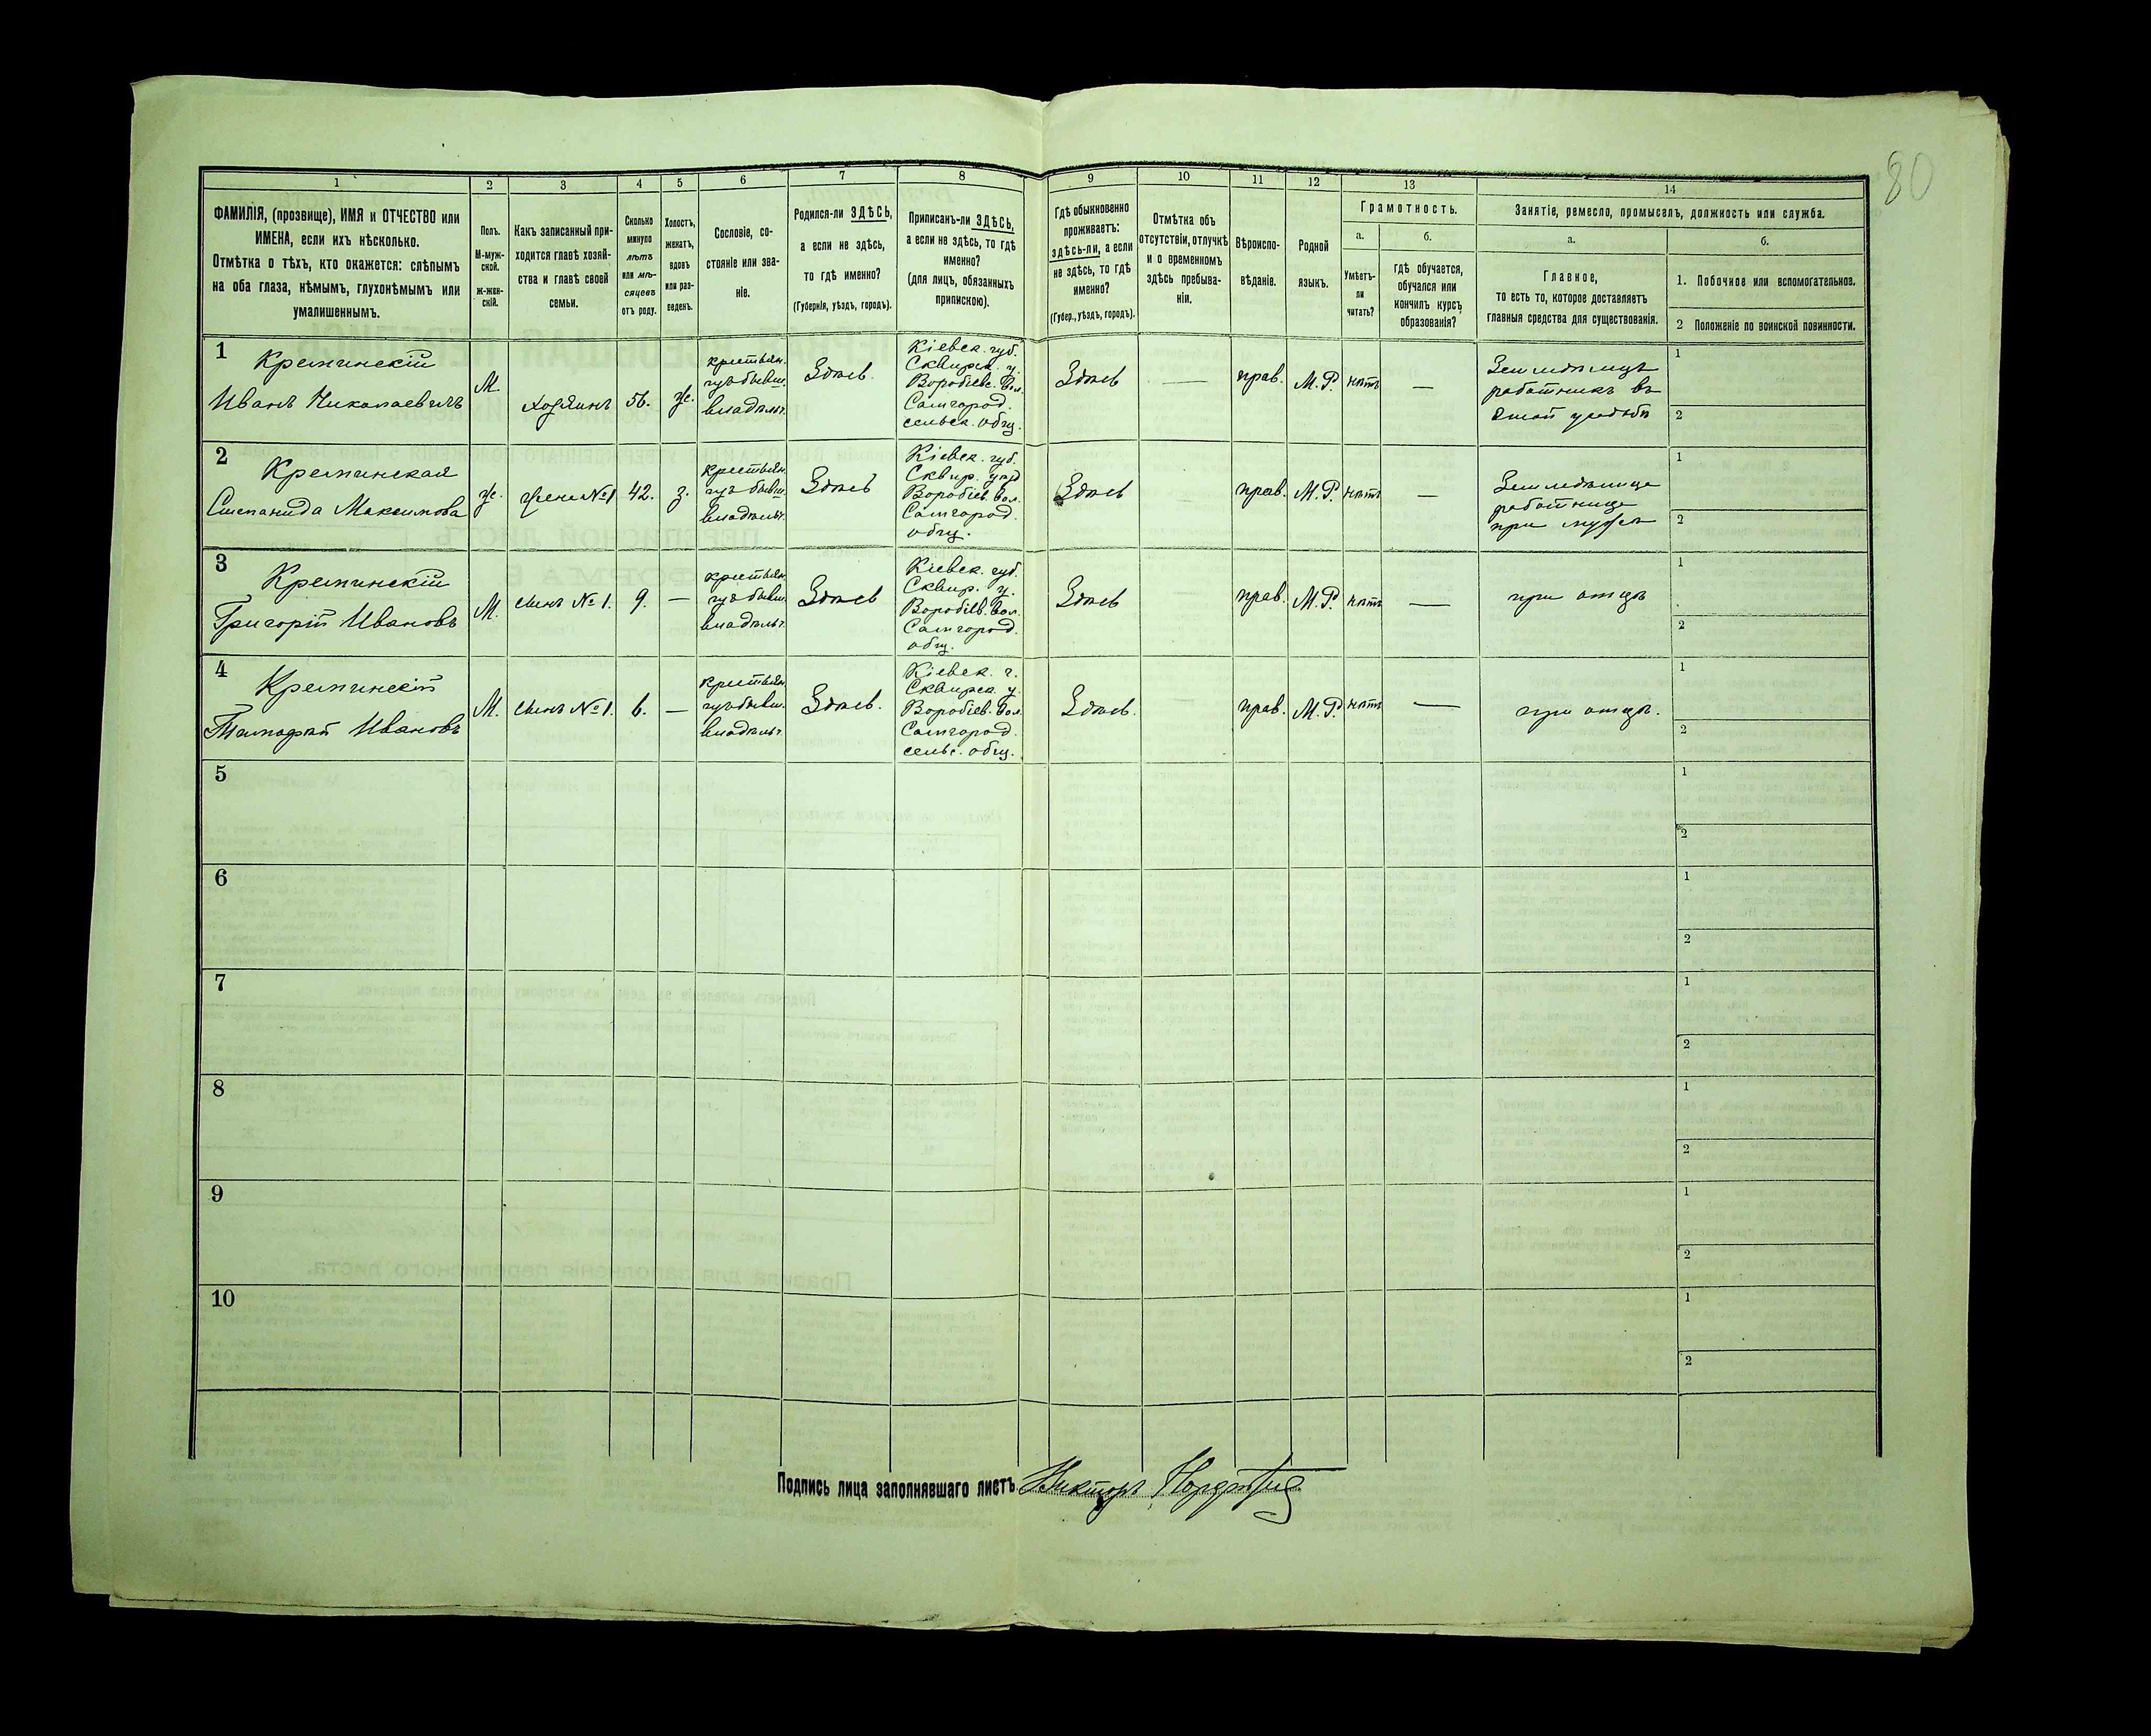 80
1 2 3 4 5 6 7 8 9 10 11 12 13 14
ФАМИЛІЯ, (прозвище), ИМЯ и ОТЧЕСТВО или
ИМЕНА, если ихъ нѣсколько.
Отмѣтка о тѣхъ, кто окажется: слѣпымъ
на оба глаза, нѣмымъ, глухонѣмымъ или
умалишеннымъ.
Полъ.
М-муж-
ской.
ж-жен-
скій.
Какъ записанный при-
ходится главѣ хозяй-
ства и главѣ своей
семьи.
Сколько
минуло
лѣтъ
или мѣ-
сяцевъ
отъ роду.
Холостъ,
женатъ,
вдовъ
или раз-
веденъ.
Сословіе, со-
стояніе или зва-
ніе.
Родился-ли ЗДѢСЬ,
а если не здѣсь,
то гдѣ именно?
(Губернія, уѣздъ, городъ).
Приписанъ-ли ЗДѢСЬ,
а если не здѣсь, то гдѣ
именно?
(для лицъ, обязанныхъ
припискою).
Гдѣ обыкновенно
проживаетъ:
здѣсь-ли, а если
не здѣсь, то гдѣ
именно?
(Губер., уѣздъ, городъ).
Отмѣтка объ
отсутствіи, отлучкѣ
и о временномъ
здѣсь пребыва-
ніи.
Вѣроиспо-
вѣданіе.
Родной
языкъ.
Грамотность.
а.
Умѣетъ-
ли
читать?
б.
гдѣ обучается,
обучался или
кончилъ курсъ
образованія?
Занятіе, ремесло, промыселъ, должность или служба.
а.
Главное,
то есть то, которое доставляетъ
главныя средства для существованія.
б.
1. Побочное или вспомогательное.
2 Положеніе по воинской повинности.
1
Креминскій
Иванъ Николаевичъ
М.
Хозяинъ
56.
Ж.
крестьян.
изъ бывш.
владѣльч.
Здѣсь.
Кіевск. губ.
Сквирск. у.
Воробіевс. вол.
Самгород.
сельск. общ.
Здѣсь
—
прав.
М. Р.
нѣтъ
—
Земледѣлецъ
работникъ въ
усадьбѣ
1
2
2
Креминская
Степанида Максимова
Ж.
жена №1
42.
З.
крестьян.
изъ бывш.
владѣльч.
Здѣсь
Кіевск. губ.
Сквир. уѣзд
Воробіев. вол.
Самгород.
общ.
Здѣсь
—
прав.
М. Р.
нѣтъ
—
Земледѣлица
работница
при мужѣ
1
2
3
Креминскій
Григорій Ивановъ
М.
сынъ №1.
9.
—
крестьян.
изъ бывш.
владѣльч.
Здѣсь
Кіевск. губ.
Сквир. у.
Воробіев. вол.
Самгород.
общ.
Здѣсь
—
прав.
М. Р.
нѣтъ
—
при отцѣ
1
2
4
Креминскій
Тимофей Ивановъ
М.
сынъ №1.
6.
—
крестьян.
изъ бывш.
владѣльч.
Здѣсь.
Кіевск. г.
Сквирск. у.
Воробіев. вол.
Самгород.
сельс. общ.
Здѣсь.
—
прав.
М. Р.
нѣтъ
—
при отцѣ.
1
2
5
1
2
6
1
2
7
1
2
8
1
2
9
1
2
10
1
2
Подпись лица заполнявшаго листъ Викторъ